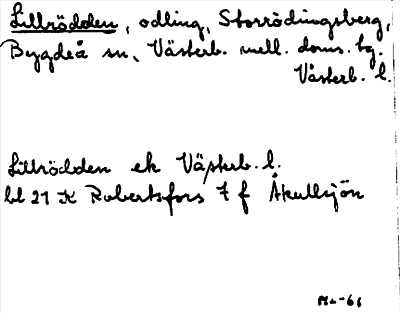 Lillrödden, odling, Storrödningsberg,
Bygdeå sn, Västerb. mell. doms. bg.
Västerb. l.
Lillrödden ek Västerb. l.
bl 21 K Robertsfors 7 f Åkullsjön